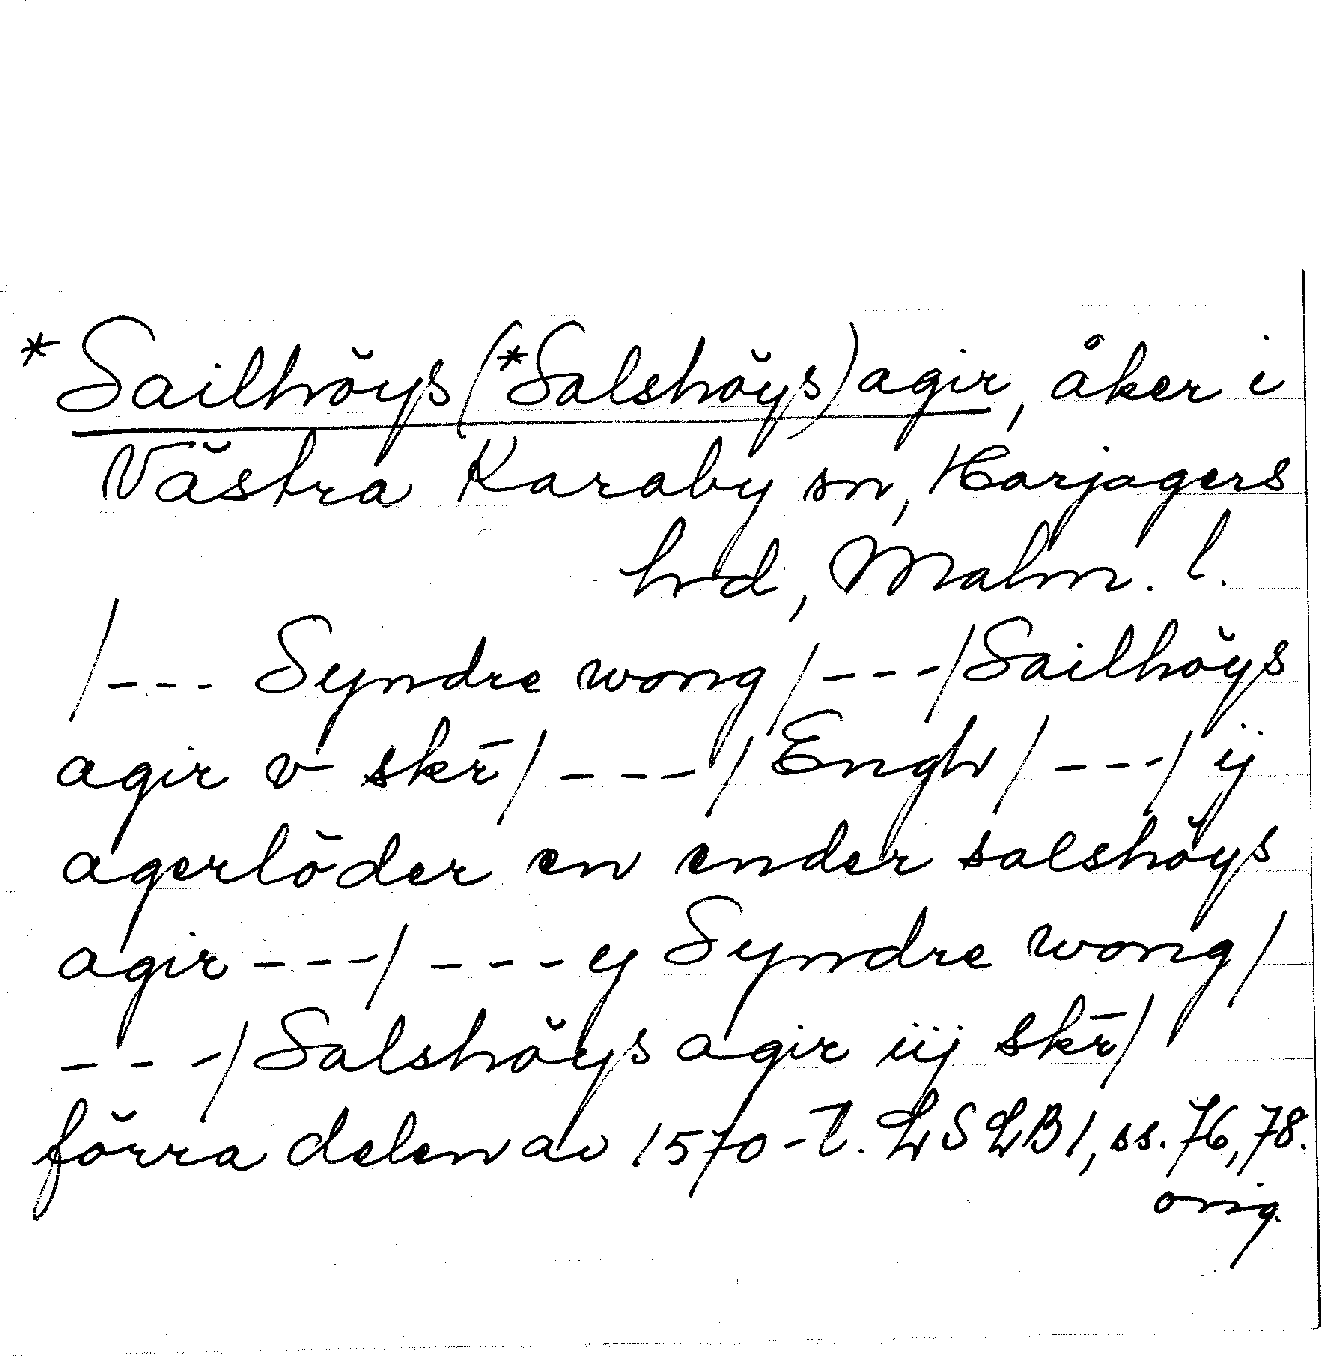 *Sailhöys(*Salshöys)agir, åker i
Västra Karaby sn, Harjagers
hd, Malm. l.
/--- Syndre wong/---/Sailhöys
agir v skr̄/---/Engh/---/ij
agerlöder en ender salshöys
agir---/---ij Syndre wong/
---/Salshöys agir iij skr̄/
förra delen av 1570-t. LSLB1, ss. 76, 78.
orig.